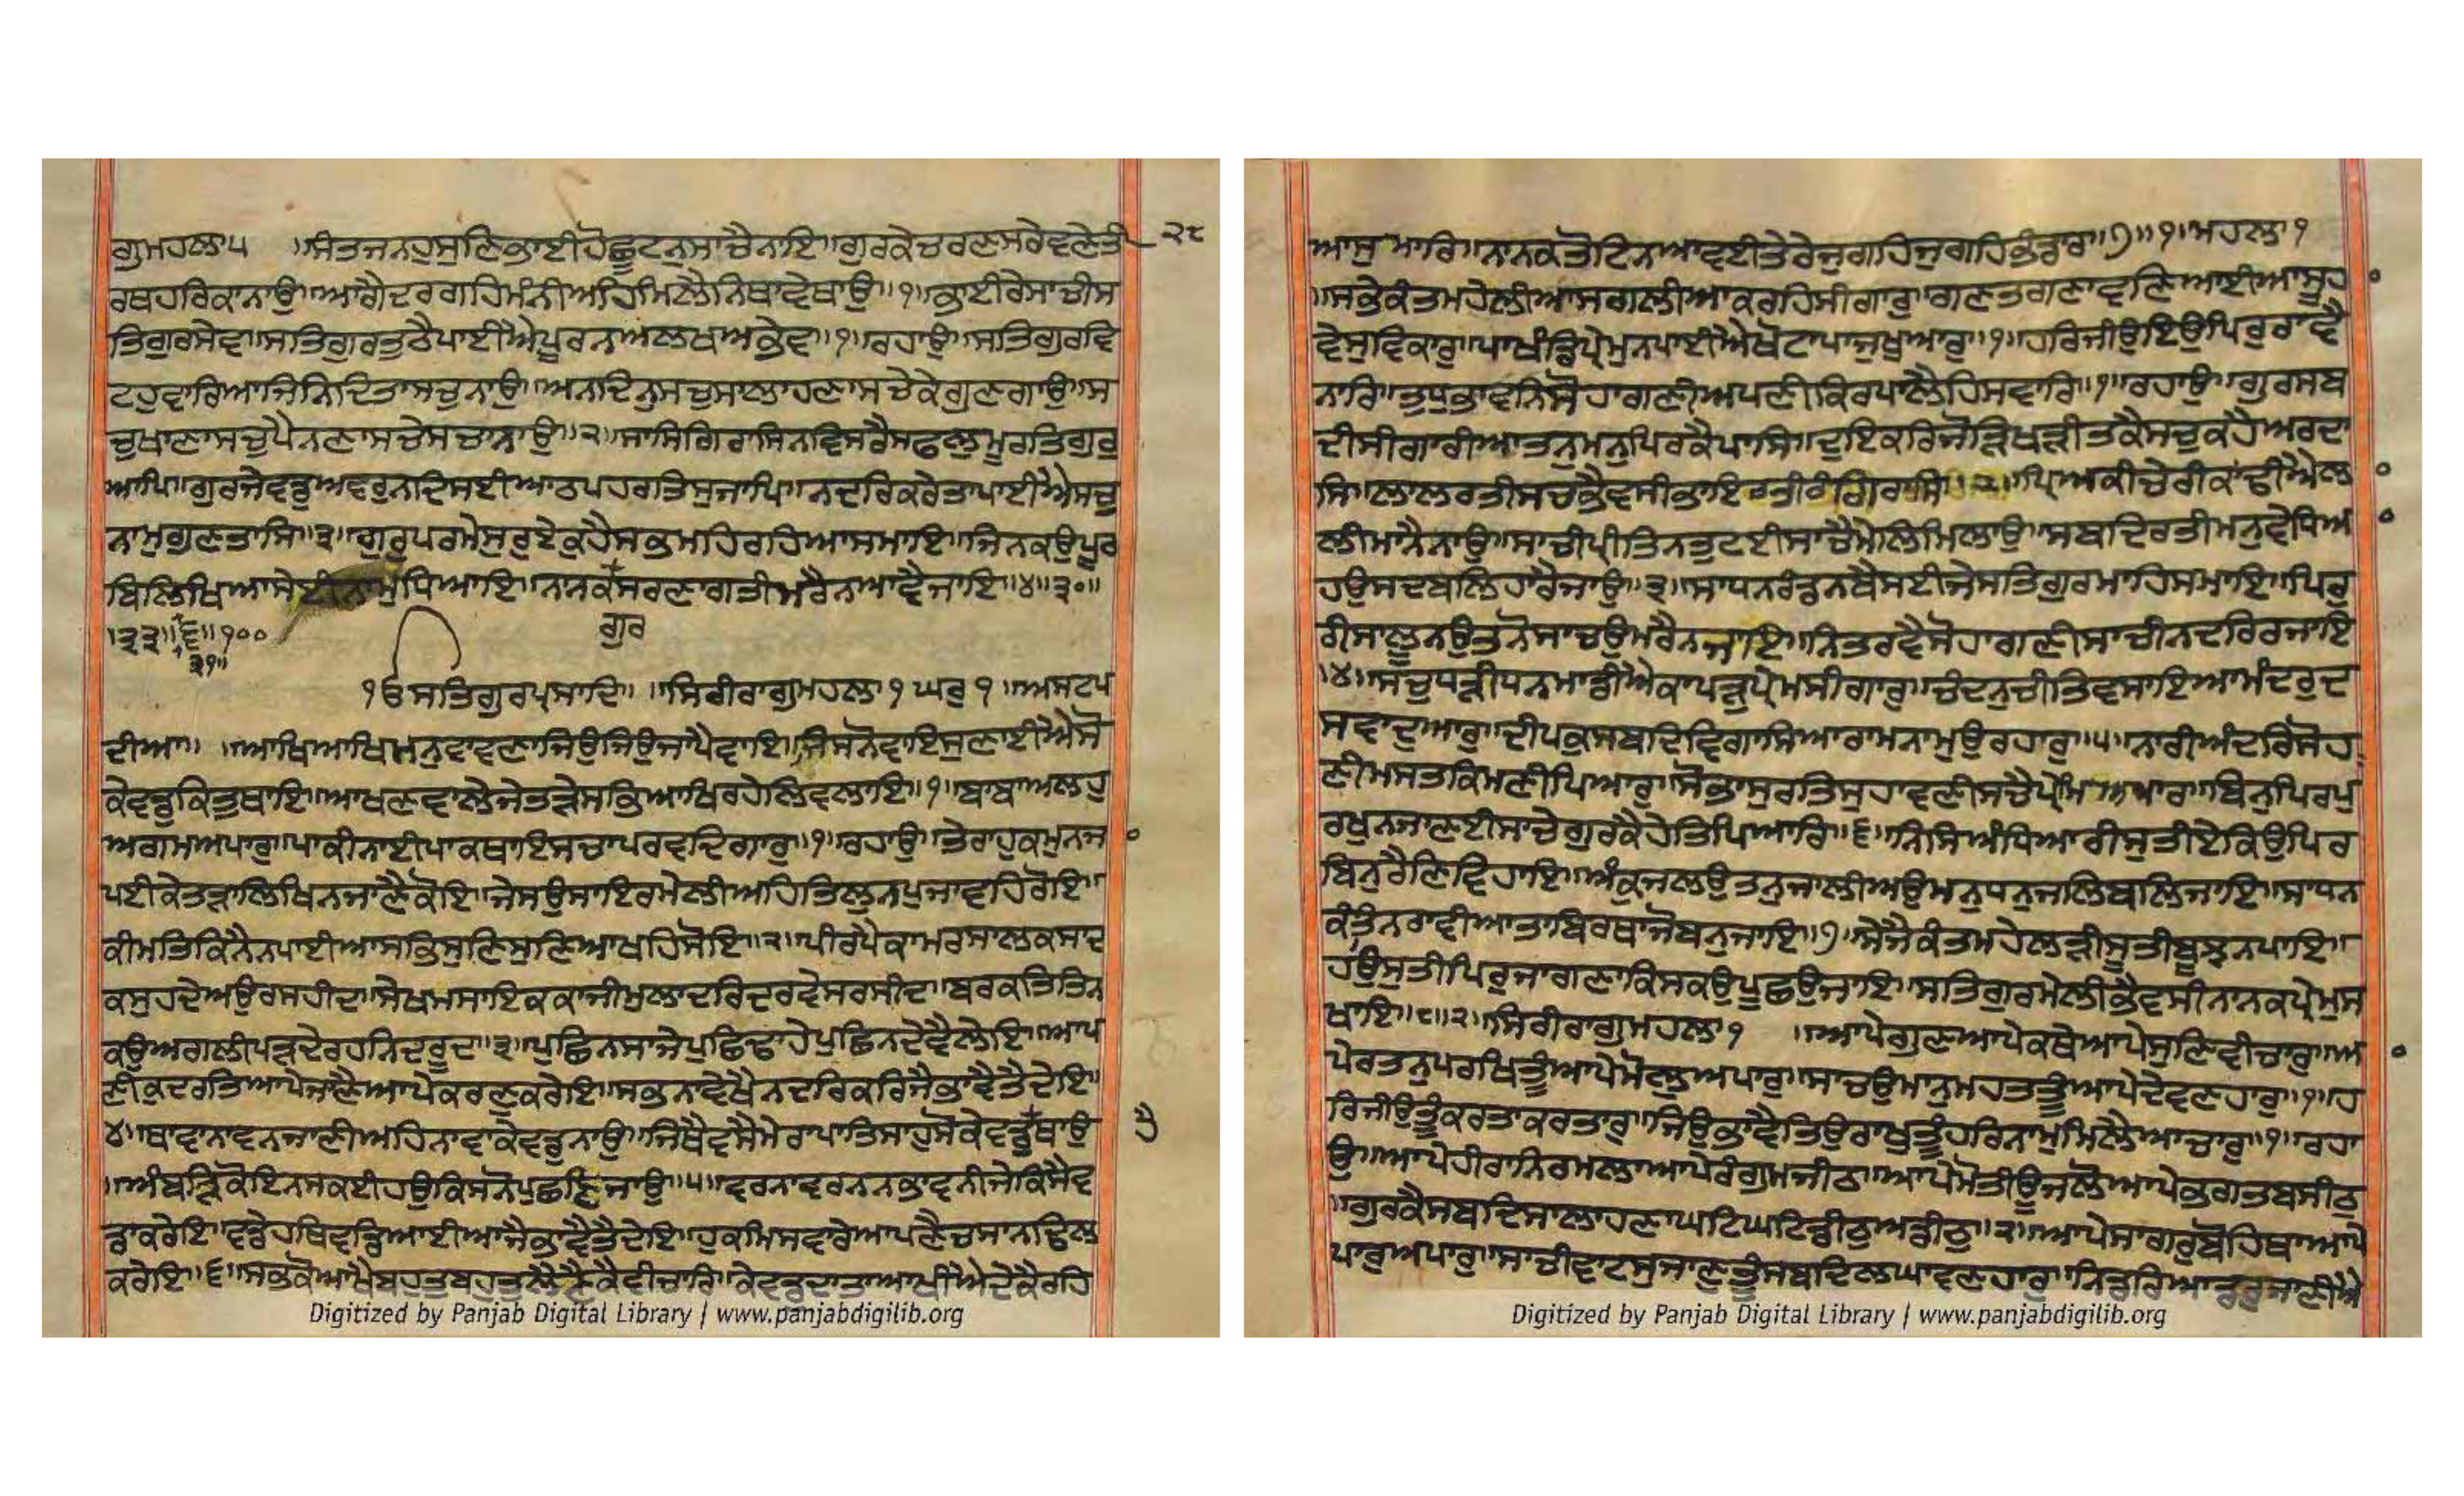 ਗੁਮਹਲਾ੫ ॥ਸੰਤਜਨਹੁਸੁਣਿਭਾਈਹੋਛੂਟਨੁਸਾਚੈਨਾਇ॥ਗੁਰਕੇਚਰਣਸਰੇਵਣੇਤੀ ੨੮
ਰਥਹਰਿਕਾਨਾਉ॥ਆਗੈਦਰਗਹਿਮੰਨੀਅਹਿਮਿਲੈਨਿਥਾਵੇਥਾਉ॥੧॥ਭਾਈਰੇਸਾਚੀਸ
ਤਿਗੁਰਸੇਵ॥ਸਤਿਗੁਰਤੁਠੈਪਾਈਐਪੂਰਨਅਲਖਅਭੇਵ॥੧॥ਰਹਾਉ॥ਸਤਿਗੁਰਵਿ
ਟਹੁਵਾਰਿਆਜਿਨਿਦਿਤਾਸਚੁਨਾਉ॥ਅਨਦਿਨੁਸਚੁਸਾਲਾਹਣਾਸਚੇਕੇਗੁਣਗਾਉ॥ਸ
ਚੁਖਾਣਾਸਚੁਪੈਨਣਾਸਚੇਸਚਾਨਾਉ॥੨॥ਸਾਸਿਗਿਰਾਸਿਨਵਿਸਰੈਸਫਲੁਮੂਰਤਿਗੁਰੁ
ਆਪਿ॥ਗੁਰਜੇਵਡੁਅਵਰੁਨਦਿਸਈਆਠਪਹਰਤਿਸੁਜਾਪਿ॥ਨਦਰਿਕਰੇਤਾਪਾਈਐਸਚੁ
ਨਾਮੁਗੁਣਤਾਸਿ॥੩॥ਗੁਰੁਪਰਮੇਸੁਰੁਏਕੁਹੈਸਭਮਹਿਰਹਿਆਸਮਾਇ॥ਜਿਨਕਉਪੂਰ
ਬਿਲਿਖਿਆਸੇਈਨਾਮੁਧਿਆਇ॥ਨਾਨਕਸਰਣਾਗਤੀਮਰੈਨਆਵੈਜਾਇ॥੪॥੩੦॥
ਗੁਰ
॥੩੩॥੬॥੧੦੦
੩੧॥
੧ੳਸਤਿਗੁਰਪ੍ਰਸਾਦਿ॥ ॥ਸਿਰੀਰਾਗੁਮਹਲਾ੧ ਘਰੁ੧ ॥ਅਸਟਪ
ਦੀਆ॥ ॥ਆਖਿਆਖਿਮਨੁਵਾਵਣਾਜਿਉਜਿਉਜਾਪੈਵਾਇ॥ਜਿਸਨੋਵਾਇਸੁਣਾਈਐਸੋ
ਕੇਵਡੁਕਿਤੁਥਾਇ॥ਆਖਣਵਾਲੇਜੇਤੜੇਸਭਿਆਖਿਰਹੇਲਿਵਲਾਇ॥੧॥ਬਾਬਾਅਲਹੁ
ਅਗਮਅਪਾਰੁ॥ਪਾਕੀਨਾਈਪਾਕਥਾਇਸਚਾਪਰਵਦਿਗਾਰੁ॥੧॥ਰਹਾਉ॥ਤੇਰਾਹੁਕਮੁਨਜਾ
ਪਈਕੇਤੜਾਲਿਖਿਨਜਾਣੈਕੋਇ॥ਜੇਸਉਸਾਇਰਮੇਲੀਅਹਿਤਿਲੁਨਪੁਜਾਵਹਿਰੋਇ॥
ਕੀਮਤਿਕਿਨੈਨਪਾਈਆਸਭਿਸੁਣਿਸੁਣਿਆਖਹਿਸੋਇ॥੨॥ਪੀਰਪੈਕਾਮਰਸਾਲਕਸਾਦ
ਕਸੁਹਦੇਅਉਰਸਹੀਦ॥ਸੇਖਮਸਾਇਕਕਾਜੀਮੁਲਾਦਰਿਦਰਵੇਸਰਸੀਦ॥ਬਰਕਤਿਤਿਨ
ਕਉਅਗਲੀਪੜਦੇਰਹਨਿਦਰੂਦ॥੩॥ਪੁਛਿਨਸਾਜੇਪੁਛਿਢਾਹੇਪੁਛਿਨਦੇਵੈਲੇਇ॥ਆਪ
ਣੀਕੁਦਰਤਿਆਪੇਜਾਣੈਆਪੇਕਰਣੁਕਰੇਇ॥ਸਭਨਾਵੇਖੈਨਦਰਿਕਰਿਜੈਭਾਵੈਤੈਦੇਇ॥
੪॥ਥਾਵਾਨਾਵਨਜਾਣੀਅਹਿਨਾਵਾਕੇਵਡੁਨਾਉ॥ਜਿਥੈਵਸੈਮੇਰਾਪਾਤਿਸਾਹੁਸੋਕੇਵਡੁਥਾਉ
॥ਅੰਬੜਿਕੋਇਨਸਕਈਹਉਕਿਸਨੋਪੁਛਣਿਜਾਉ॥੫॥ਵਰਨਾਵਰਨਨਭਾਵਨੀਜੇਕਿਸੈਵ
ਡਾਕਰੇਇ॥ਵਡੇਹਥਿਵਡਿਆਈਆਜੈਭਾਵੈਤੈਦੇਇ॥ਹੁਕਮਿਸਵਾਰੇਆਪਣੈਚਸਾਨਢਿਲ
ਕਰੇਇ॥੬॥ਸਭਕੋਆਖੈਬਹੁਤੁਬਹੁਤੁਲੈਣੈਕੈਵੀਚਾਰਿ॥ਕੇਵਡੁਦਾਤਾਆਖੀਐਦੇਕੈਰਹਿ
Digitized by Panjab Digital Library | www.panjabdigilib.org
ਆਸੁਮਾਰਿ॥ਨਾਨਕਤੋਟਿਨਆਵਈਤੇਰੇਜੁਗਹਿਜੁਗਹਿਭੰਡਾਰ॥੭॥੧॥ਮਹਲਾ੧
॥ਸਭੇਕੰਤਮਹੇਲੀਆਸਗਲੀਆਕਰਹਿਸੀਗਾਰੁ॥ਗਣਤਗਣਾਵਣਿਆਈਆਸੂਹਾ
ਵੇਸੁਵਿਕਾਰੁ॥ਪਾਖੰਡਿਪ੍ਰੇਮੁਨਪਾਈਐਖੋਟਾਪਾਜੁਖੁਆਰੁ॥੧॥ਹਰਿਜੀਉਇਉਪਿਰੁਰਾਵੈ
ਨਾਰਿ॥ਤੁਧੁਭਾਵਨਿਸੋਹਾਗਣੀਅਪਣੀਕਿਰਪਾਲੈਹਿਸਵਾਰਿ॥੧॥ਰਹਾਉ॥ਗੁਰਸਬ
ਦੀਸੀਗਾਰੀਆਤਨੁਮਨੁਪਿਰਕੈਪਾਸਿ॥ਦੁਇਕਰਿਜੋੜਿਖੜੀਤਕੈਸਚੁਕਹੈਅਰਦਾ
ਸਿ॥ਲਾਲਰਤੀਸਚਭੈਵਸੀਭਾਇਰਤੀਰੰਗਿਰਾਸਿ॥੨॥ਪ੍ਰਿਅਕੀਚੇਰੀਕਾਂਢੀਐਲਾ
ਲੀਮਾਨੈਨਾਉ॥ਸਾਚੀਪ੍ਰੀਤਿਨਤੁਟਈਸਾਚੈਮੇਲਿਮਿਲਾਉ॥ਸਬਦਿਰਤੀਮਨੁਵੇਧਿਆ
ਹਉਸਦਬਲਿਹਾਰੈਜਾਉ॥੩॥ਸਾਧਨਰੰਡਨਬੈਸਈਜੇਸਤਿਗੁਰਮਾਹਿਸਮਾਇ॥ਪਿਰੁ
ਰੀਸਾਲੂਨਉਤਨੋਸਾਚਉਮਰੈਨਜਾਇ॥ਨਿਤਰਵੈਸੋਹਾਗਣੀਸਾਚੀਨਦਰਿਰਜਾਇ
॥੪॥ਸਚੁਧੜੀਧਨਮਾਡੀਐਕਾਪੜੁਪ੍ਰੇਮਸੀਗਾਰੁ॥ਚੰਦਨੁਚੀਤਿਵਸਾਇਆਮੰਦਰੁਦ
ਸਵਾਦੁਆਰੁ॥ਦੀਪਕੁਸਬਦਿਵਿਗਾਸਿਆਰਾਮਨਾਮੁਉਰਹਾਰੁ॥੫॥ਨਾਰੀਅੰਦਰਿਸੋਹ
ਣੀਮਸਤਕਿਮਣੀਪਿਆਰੁ॥ਸੋਭਾਸੁਰਤਿਸੁਹਾਵਣੀਸਚੈਪ੍ਰੇਮਿਅਪਾਰ॥ਬਿਨੁਪਿਰਪੁ
ਰਖੁਨਜਾਣਈਸਾਚੇਗੁਰਕੈਹੇਤਿਪਿਆਰਿ॥੬॥ਨਿਸਿਅੰਧਿਆਰੀਸੁਤੀਏਕਿਉਪਿਰ
ਬਿਨੁਰੈਣਿਵਿਹਾਇ॥ਅੰਕੁਜਲਉਤਨੁਜਾਲੀਅਉਮਨੁਧਨੁਜਲਿਬਲਿਜਾਇ॥ਸਾਧਨ
ਕੰਤਿਨਰਾਵੀਆਤਾਬਿਰਥਾਜੋਬਨੁਜਾਇ॥੭॥ਸੇਜੈਕੰਤਮਹੇਲੜੀਸੂਤੀਬੂਝਨਪਾਇ॥
ਹਉਸੁਤੀਪਿਰੁਜਾਗਣਾਕਿਸਕਉਪੂਛਉਜਾਇ॥ਸਤਿਗੁਰਮੇਲੀਭੈਵਸੀਨਾਨਕਪ੍ਰੇਮੁਸ
ਖਾਇ॥੮॥੨॥ਸਿਰੀਰਾਗੁਮਹਲਾ੧ ॥ਆਪੇਗੁਣਆਪੇਕਥੇਆਪੇਸੁਣਿਵੀਚਾਰੁ॥ਆ
ਪੇਰਤਨੁਪਰਖਿਤੂੰਆਪੇਮੋਲੁਅਪਾਰੁ॥ਸਾਚਉਮਾਨੁਮਹਤਤੂੰਆਪੇਦੇਵਣਹਾਰੁ॥੧॥ਹ
ਰਿਜੀਉਤੂੰਕਰਤਾਕਰਤਾਰੁ॥ਜਿਉਭਾਵੈਤਿਉਰਾਖੁਤੂੰਹਰਿਨਾਮੁਮਿਲੈਆਚਾਰੁ॥੧॥ਰਹਾ
ਉ॥ਆਪੇਹੀਰਾਨਿਰਮਲਾਆਪੇਰੰਗੁਮਜੀਠਾ॥ਆਪੇਮੋਤੀਊਜਲੋਆਪੇਭਗਤਬਸੀਠੁ
॥ਗੁਰਕੈਸਬਦਿਸਾਲਾਹਣਾਘਟਿਘਟਿਡੀਠੁਅਡੀਠੁ॥੨॥ਆਪੇਸਾਗਰੁਬੋਹਿਥਾਆਪੇ
ਪਾਰੁਅਪਾਰੁ॥ਸਾਚੀਵਾਟਸੁਜਾਣੁਤੂੰਸਬਦਿਲਘਾਵਣਹਾਰੁ॥ਨਿਡਰਿਆਡਰੁਜਾਣੀਐ
Digitized by Panjab Digital Library | www.panjabdigilib.org